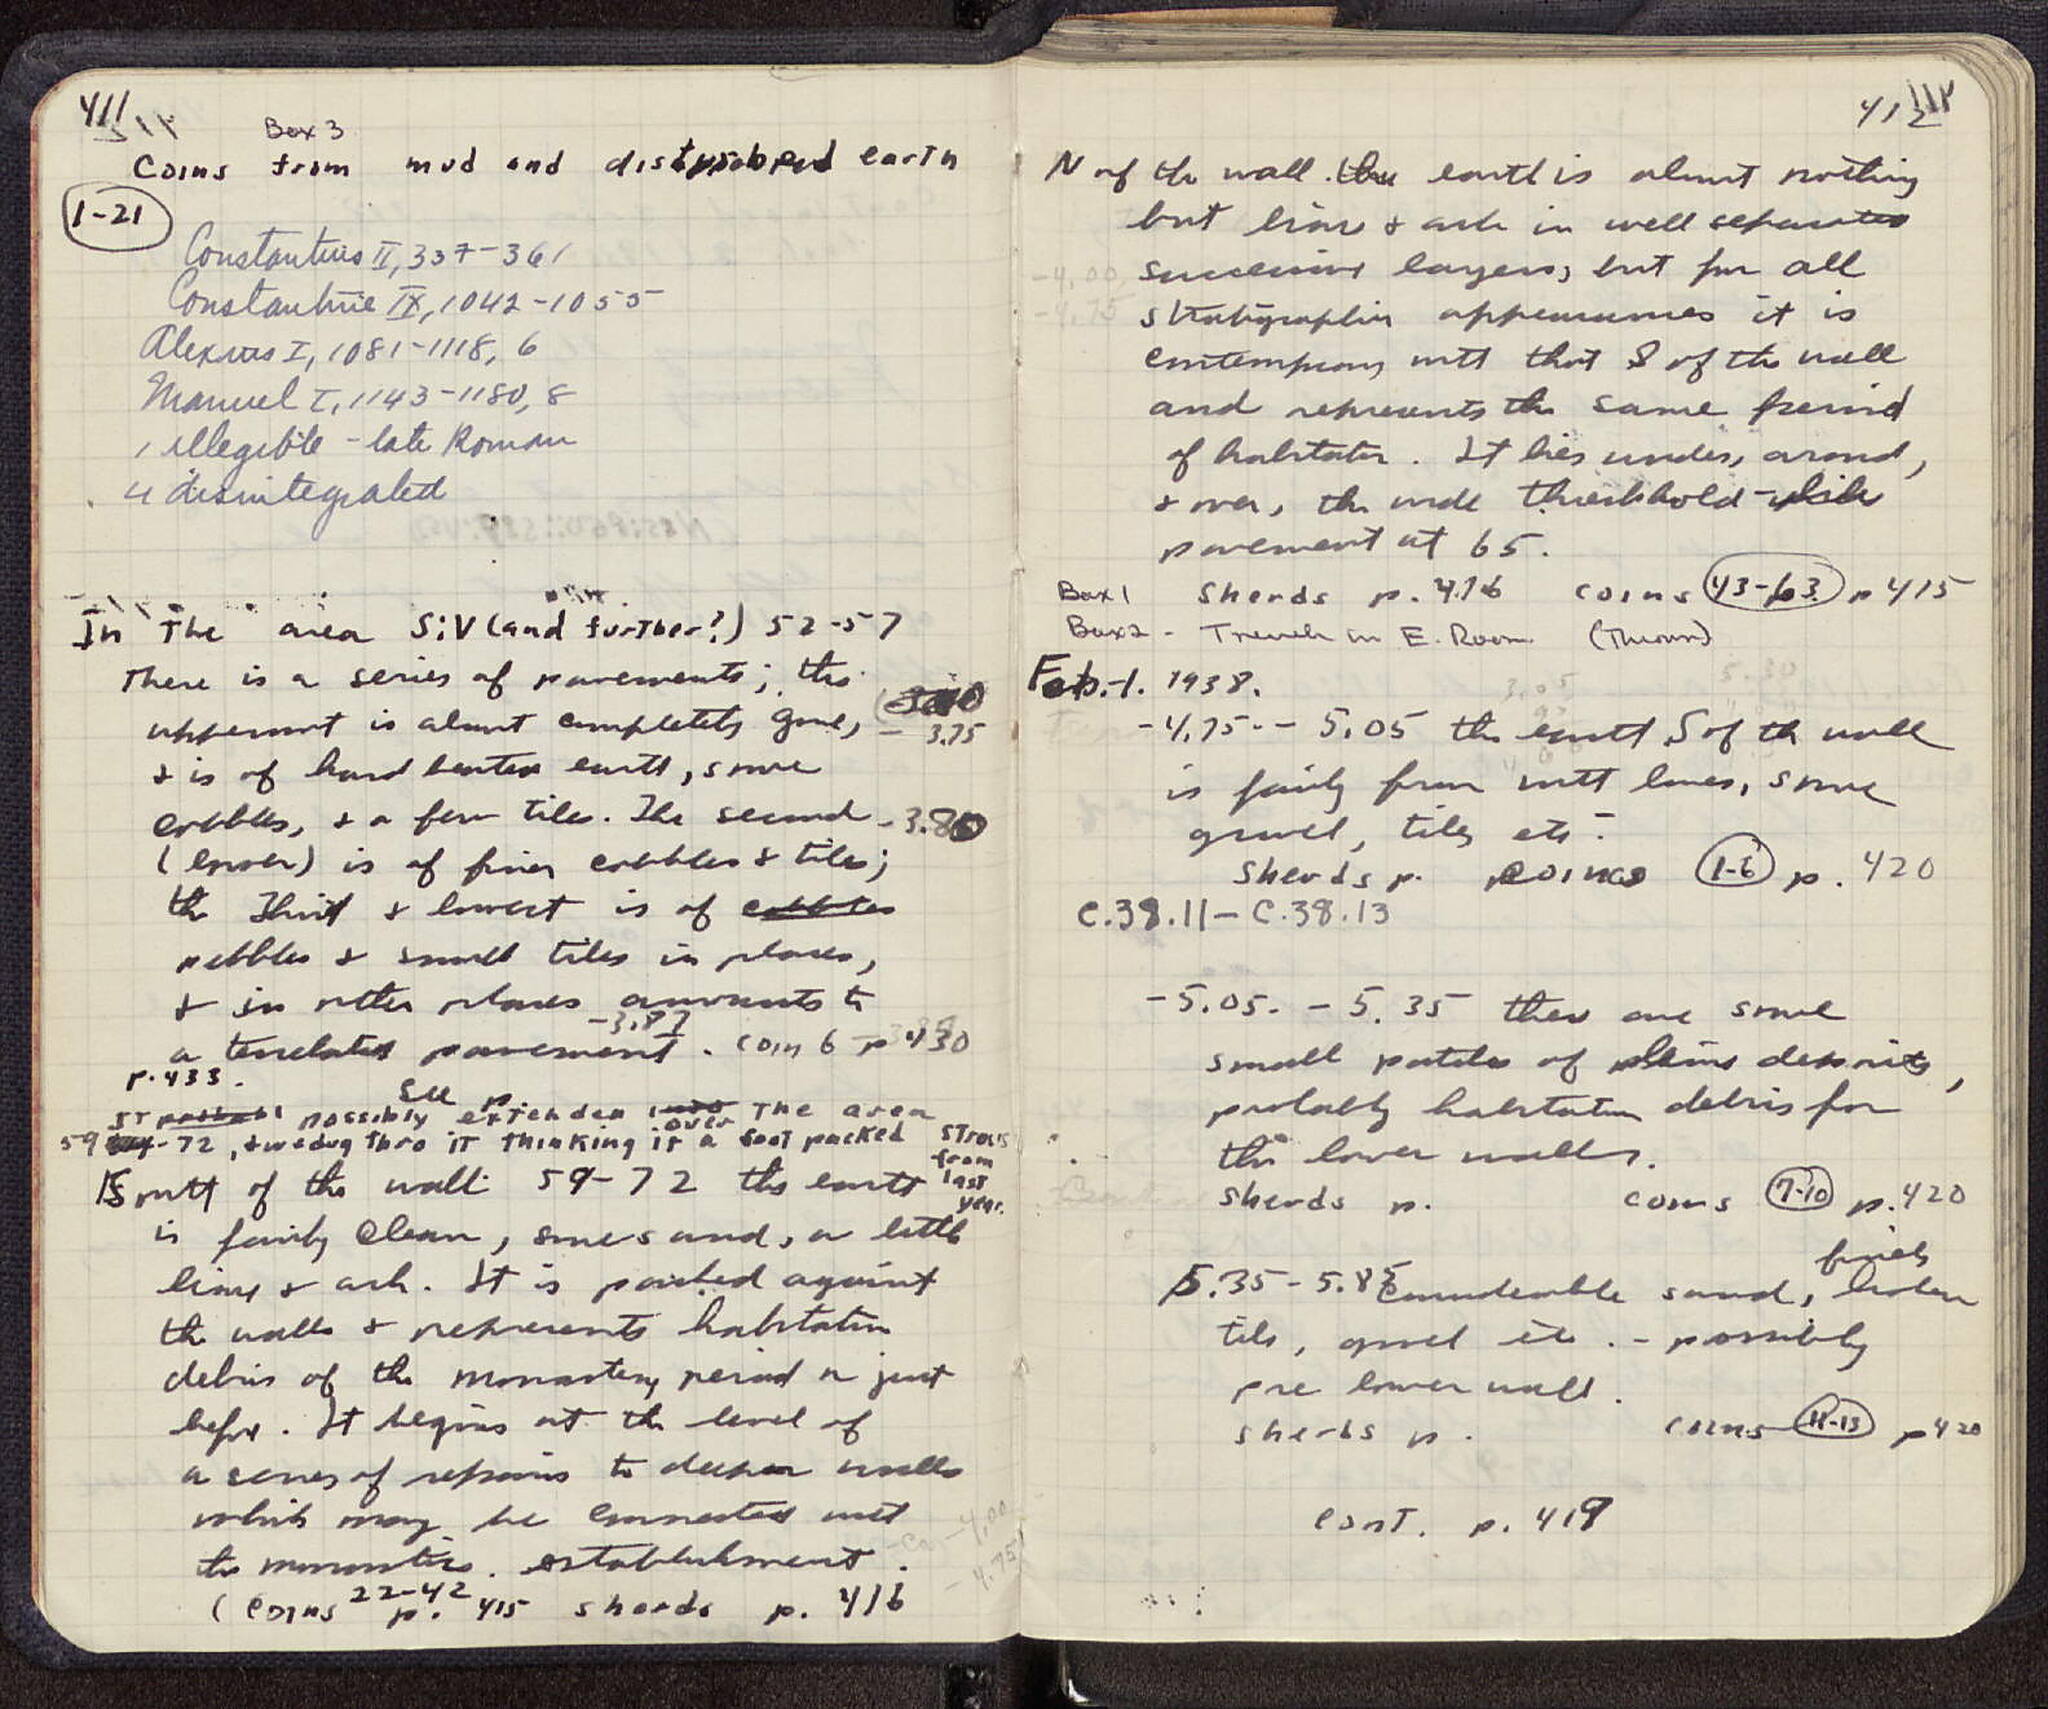 411
Box 3
Coins from mud and disturbed earth
1-21
Constantius II, 337-361
Constantine IX, 1042-1055
Alexius I, 1081-1118, 6
Manuel I, 1143-1180, 8
1 illegible - late Roman
4 disintegrated
In the area S:V (and further?) 52-57
There is a series of pavements; the
uppermost is almost completely gone, - 3.75
& is of hard beaten earth, some
cobbles, & a few tiles. The second - 3.80
(lower) is of finer cobbles & tiles;
the third & lowest is of cobbles
pebbles & small tiles in places,
& in other places amounts to
-3.87
a tesselated pavement. coin 6 p 430
p. 433.
See p.
It possibly extended into over the area
59-72, & we dug thro it thinking it a foot packed stratum from last year.
South of the wall 59-72 the earth
is fairly clean, some sand, a little
lime & ash. It is packed against
the walls & represents habitation
debris of the monastery period or just
before. It begins at the level of
a series of repairs to deeper walls
which may be connected with
the monastic establishment.
-ca -4.00
-4.75
(Coins 22-42 p. 415 sherds p. 416
412
N of the wall the earth is almost nothing
but lime & ash in well separated
successive layers, but for all
stratigraphic appearances it is
contemporary with that S of the wall
and represents the same period
of habitation. It lies under, around,
& over, the wide threshhold-like
pavement at 65.
Box 1 Sherds p. 416 coins 43-63 p 415
Box 2 - Trench in E. Room (Thrown)
Feb. 1. 1938.
-4.75 - - 5.05 the earth S of the wall
is fairly firm with lenses, some
gravel, tiles etc.
Sherds p. coins 1-6 p. 420
C.38.11 - C.38.13
-5.05. - 5.35 there are some
small patches of deposits,
probably habitation debris for
the lower walls.
Sherds p. coins 7-10 p. 420
5.35 - 5.85 Considerable sand, finely broken
tile, gravel etc. - possibly
pre lower wall.
sherds p. coins 11-13 p 420
cont. p. 419